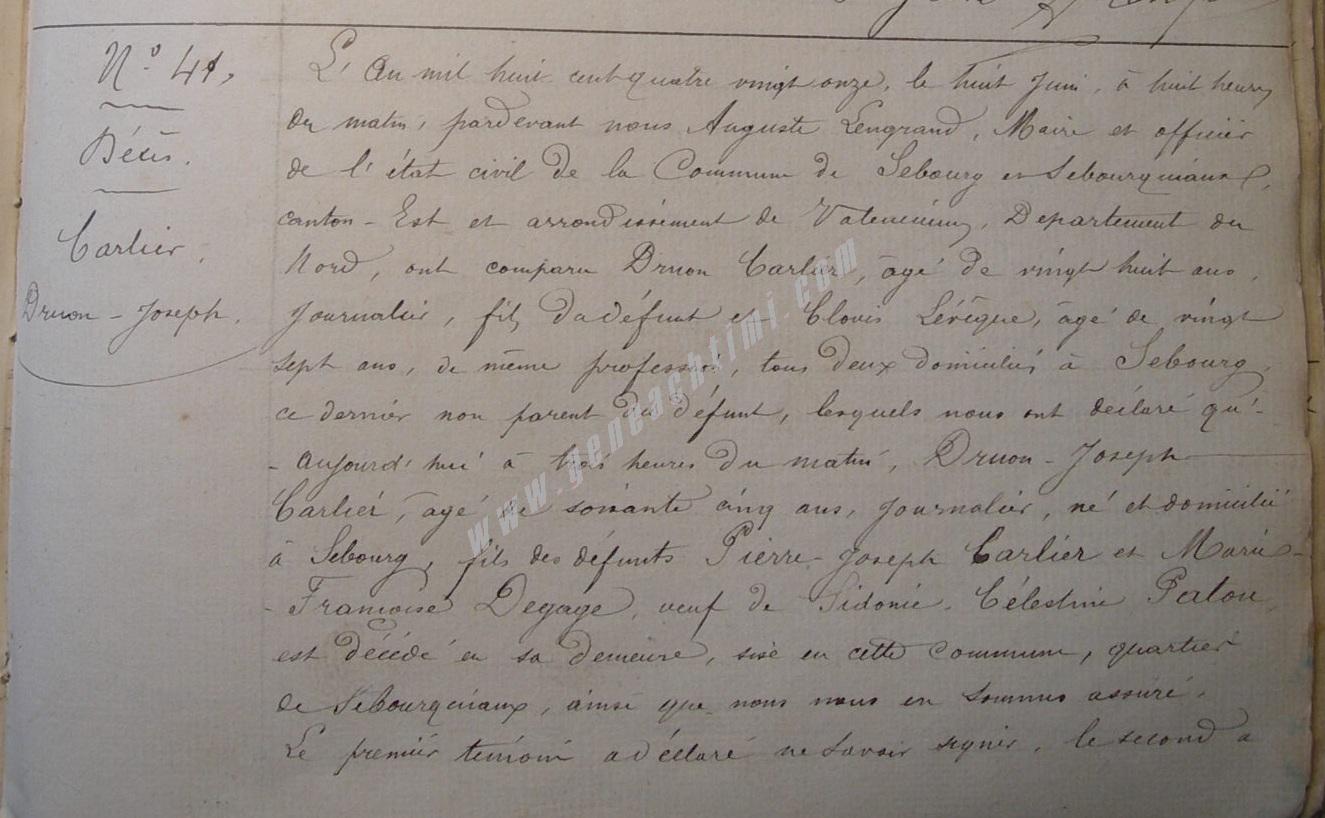 N.° 41,
Décès.
Carlier,
Druon - Joseph.
L'an mil huit cent quatre vingt onze, le huit Juin, à huit heures
du matin, pardevant nous Auguste Lengrand, Maire et officier
de l'état civil de la Commune de Sebourg et Sebourquiaux,
canton - Est et arrondissement de Valenciennes, Departement du
Nord, ont comparu Druon Carlier, âgé de vingt huit ans,
journalier, fils du défunt et Clovis Lévêque, âgé de vingt
sept ans, de même profession, tous deux domiciliés à Sebourg,
ce dernier non parent du défunt, lesquels nous ont déclaré qu'-
- aujourd'hui à trois heures du matin, Druon - Joseph
Carlier, âgé de soixante cinq ans, journalier, né et domicilié
à Sebourg, fils des défunts Pierre - Joseph Carlier et Marie -
- Françoise Degage, veuf de Sidonie - Célestine Patou,
est décédé en sa demeure, sise en cette commune, quartier
de Sebourquiaux, ainsi que nous nous en sommes assuré.
Le premier témoin a déclaré ne savoir signer, le second a
www.geneachtimi.com